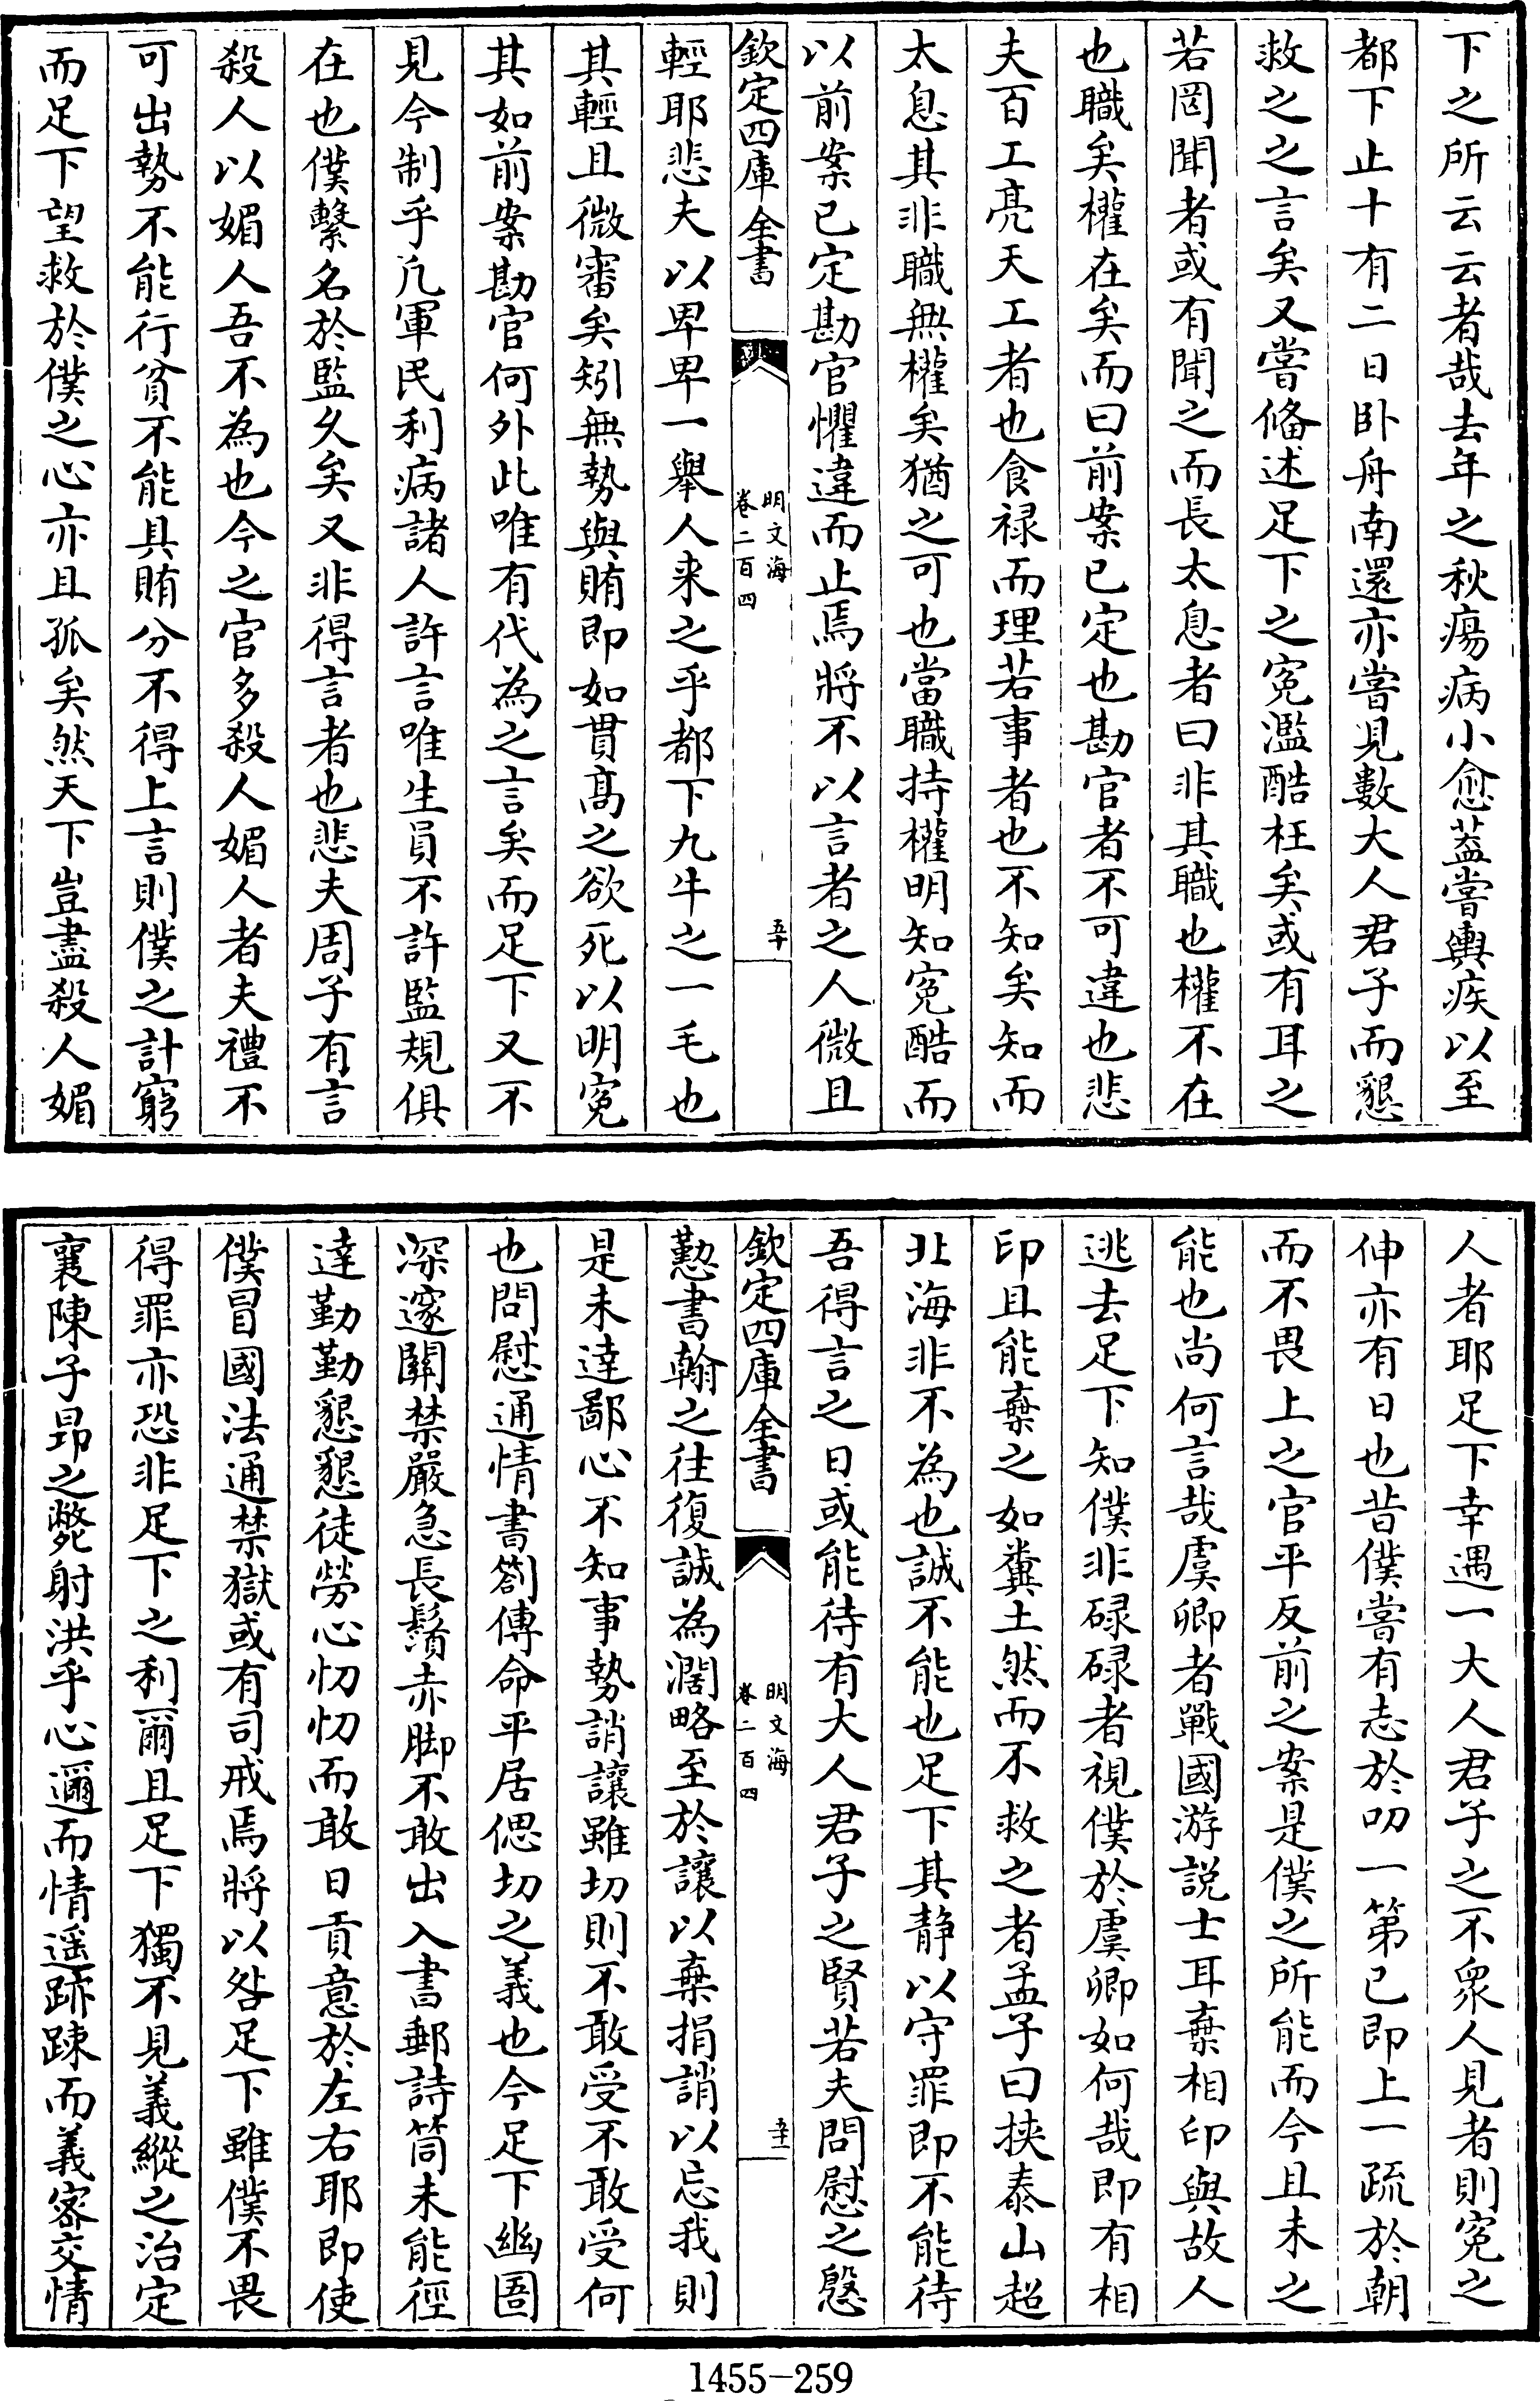 下之所云云者哉去年之秋瘍病小愈葢嘗輿疾以至
都下止十有二日卧舟南還亦嘗見數大人君子而懇
救之之言矣又嘗偹述足下之寃濫酷枉矣或有耳之
若罔聞者或有聞之而長太息者曰非其職也權不在
也職矣權在矣而曰前案已定也勘官者不可違也悲
夫百工亮天工者也食禄而理若事者也不知矣知而
太息其非職無權矣猶之可也當職持權明知寃酷而
以前案已定勘官懼違而止焉將不以言者之人微且
欽定四庫全書
明文海
卷二百四
五十
輕耶悲夫以卑卑一舉人来之乎都下九牛之一毛也
其輕且微審矣矧無勢與賄即如貫高之欲死以明寃
其如前案勘官何外此唯有代為之言矣而足下又不
見今制乎凡軍民利病諸人許言唯生員不許監規俱
在也僕繫名於監久矣又非得言者也悲夫周子有言
殺人以媚人吾不為也今之官多殺人媚人者夫禮不
可出勢不能行貧不能具賄分不得上言則僕之計窮
而足下望救於僕之心亦且孤矣然天下豈盡殺人媚
人者耶足下幸遇一大人君子之不衆人見者則寃之
伸亦有日也昔僕嘗有志於叨一第已即上一疏於朝
而不畏上之官平反前之案是僕之所能而今且未之
能也尚何言哉虞卿者戰國游説士耳棄相印與故人
逃去足下知僕非碌碌者視僕於虞卿如何哉即有相
印且能棄之如糞土然而不救之者孟子曰挾泰山超
北海非不為也誠不能也足下其静以守罪即不能待
吾得言之日或能待有大人君子之賢若夫問慰之慇
欽定四庫全書
明文海
卷二百四
五十一
懃書翰之往復誠為濶略至於讓以棄捐誚以忘我則
是未達鄙心不知事勢誚讓雖切則不敢受不敢受何
也問慰通情書劄傳命平居偲切之義也今足下幽圄
深邃關禁嚴急長鬚赤脚不敢出入書郵詩筒未能徑
達勤勤懇懇徒勞心忉忉而敢日貢意於左右耶即使
僕冒國法通禁獄或有司戒焉將以咎足下雖僕不畏
得罪亦恐非足下之利爾且足下獨不見義縱之治定
襄陳子昻之斃射洪乎心邇而情遥跡踈而義宻交情
1455-259